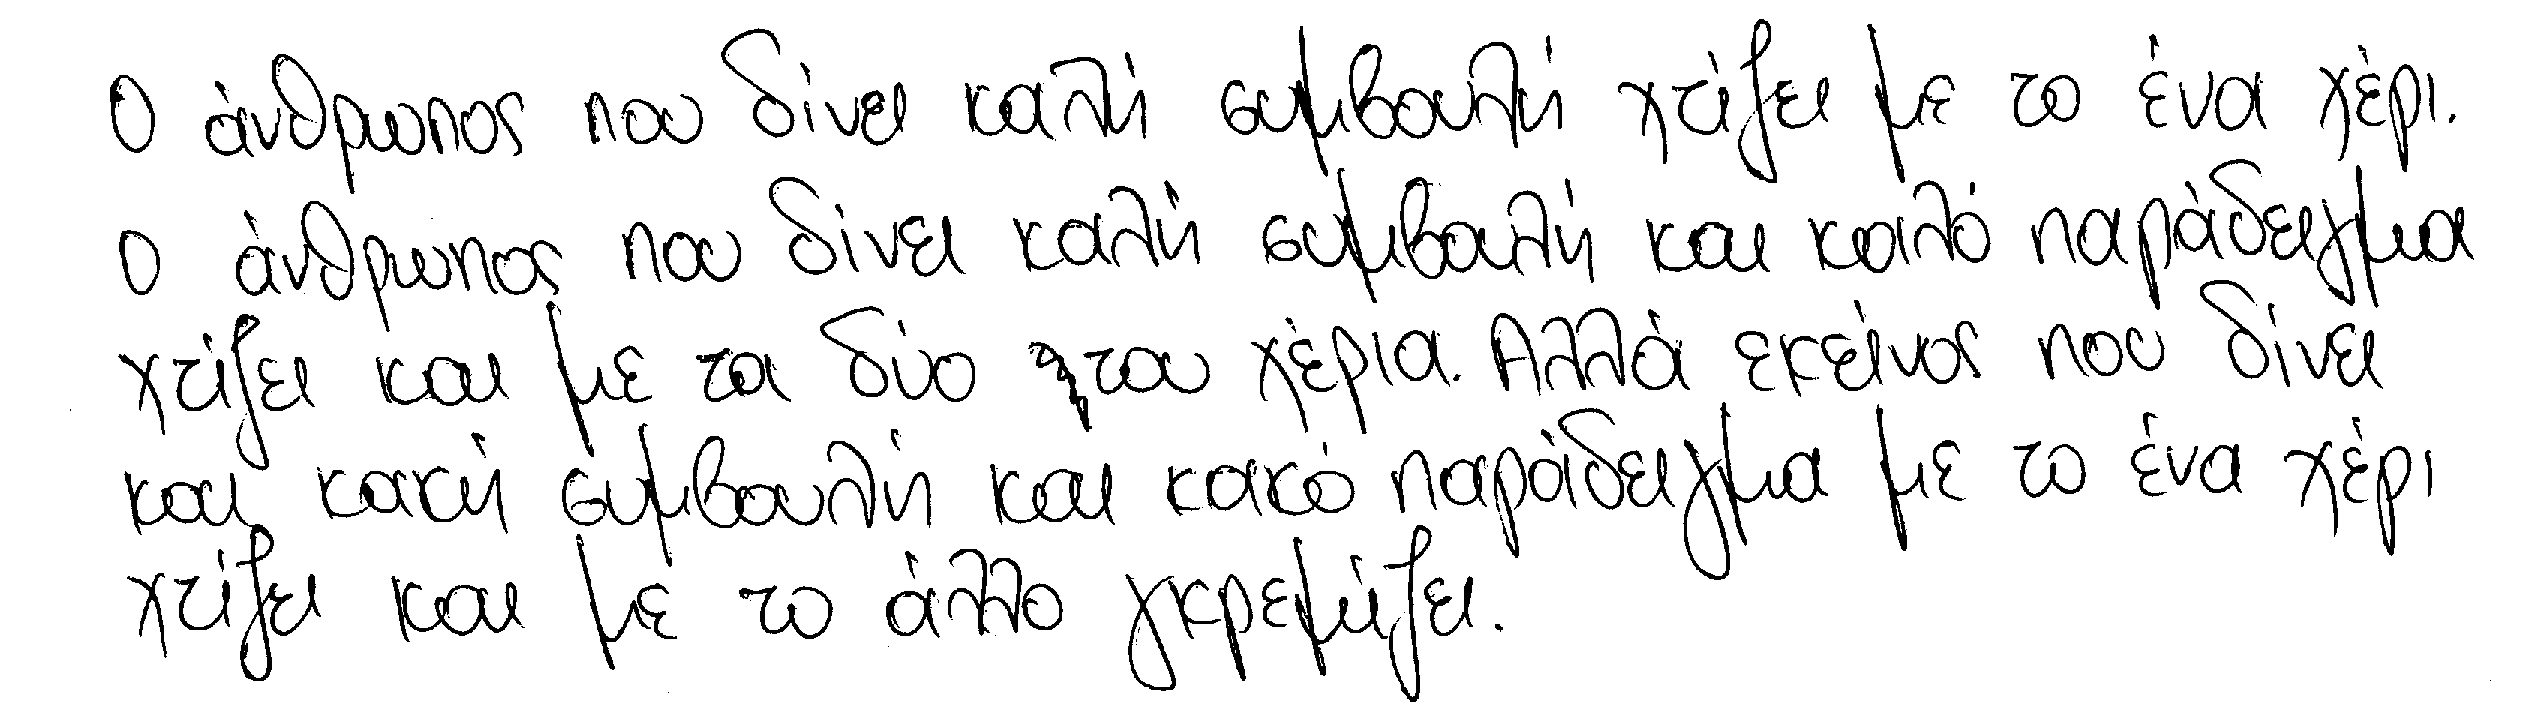 Ο άνθρωπος που δίνει καλή συμβουλή χτίζει με το ένα χέρι.
Ο άνθρωπος που δίνει καλή συμβουλή και καλό παράδειγμα
χτίζει και με τα δύο του χέρια. Αλλά εκείνος που δίνει
και κακή συμβουλή και κακό παράδειγμα με το ένα χέρι
χτίζει και με το άλλο γκρεμίζει.